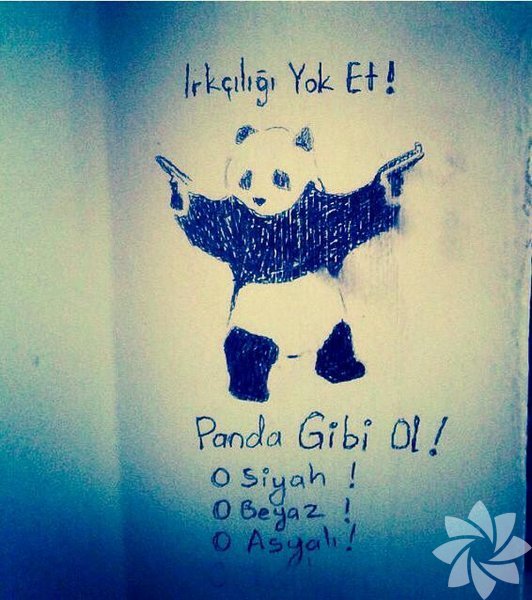 Irkçılığı Yok Et!
Panda Gibi Ol!
O Siyah !
O Beyaz !
O Asyalı!